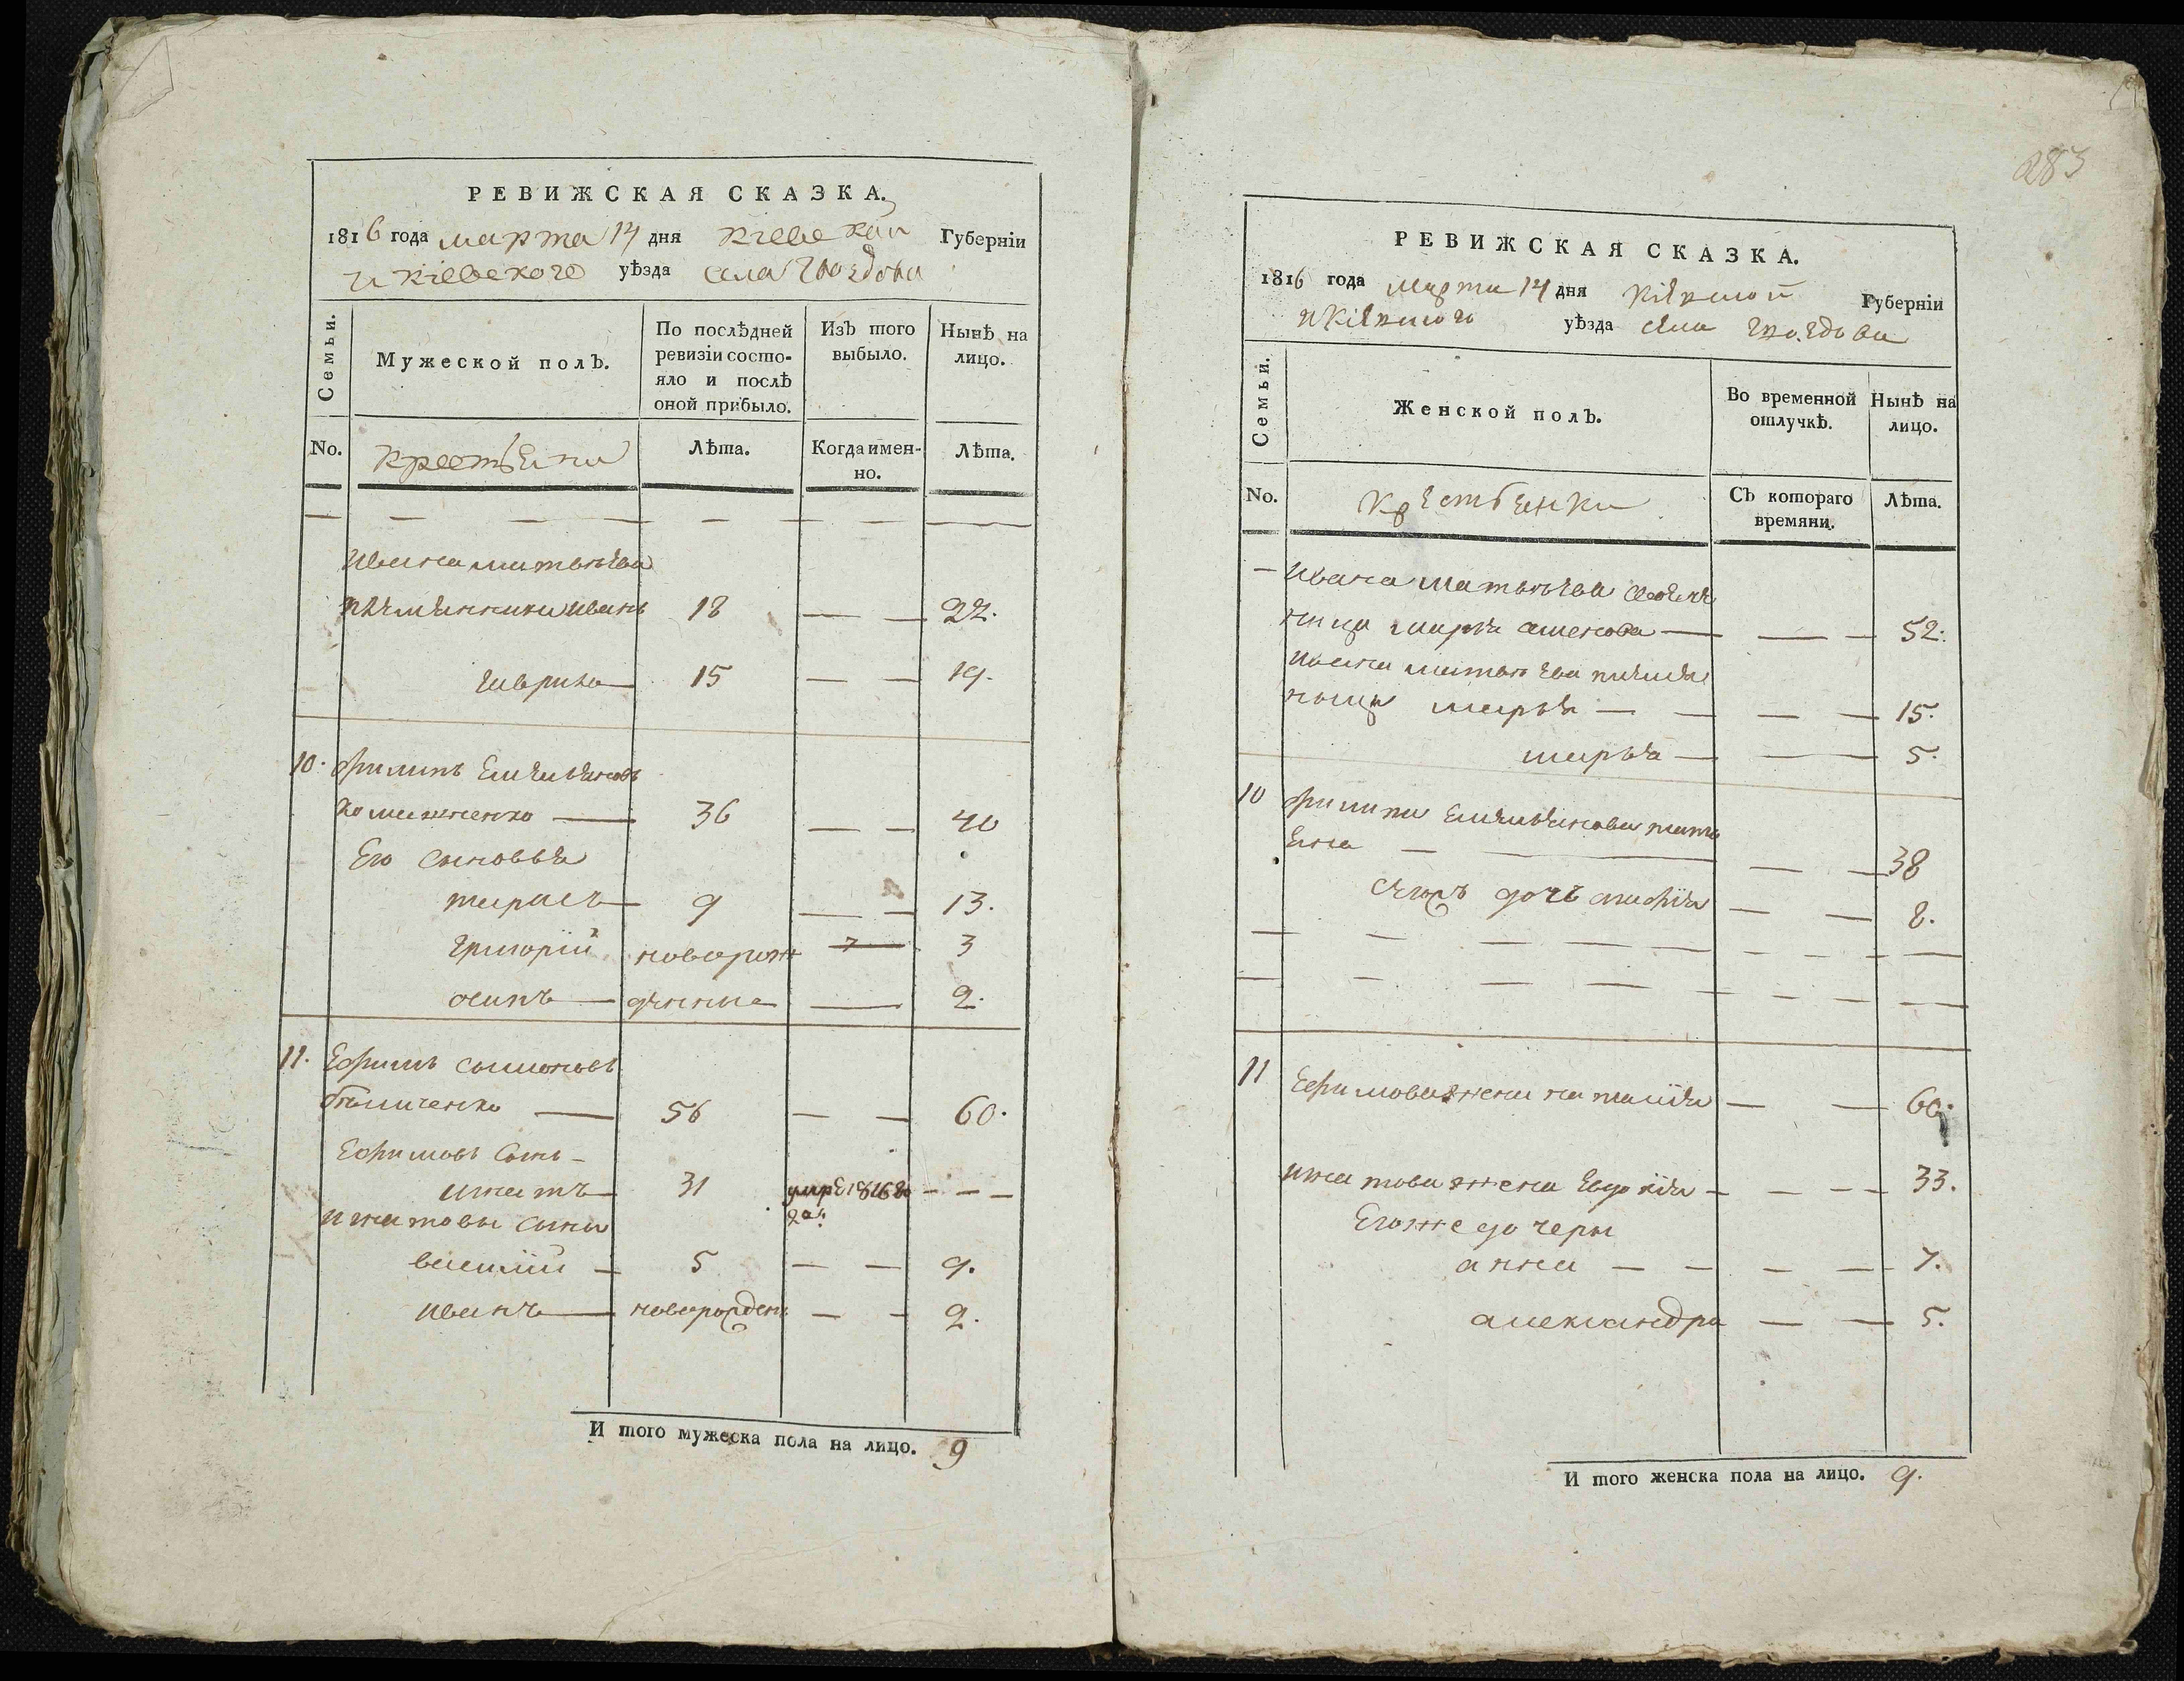 РЕВИЖСКАЯ СКАЗКА.
1816 года марта 14 дня Кіевской Губерніи
и Кіевского уѣзда села Гвоздова
Семьи.
Мужеской полъ.
По послѣдней ревизіи состояло и послѣ оной прибыло.
Изъ того выбыло.
Нынѣ на лицо.
No.
Крестьяни
Лѣта.
Когда именно.
Лѣта.
Ивана Матвѣева
племянники Иванъ 18 — — 22.
Гаврило 15 — — 19.
10. Филипъ Емельяновъ
36 — — 40
Его сыновья
тарасъ 9 — — 13.
григорій новорож 3
осипъ денние — 2.
11. Ефимъ
56 — — 60.
Ефимовъ сынъ
Игнатъ 31 умре 1816 го — — —
Игнатовы сыны
василій 5 — — 9.
иванъ новорожден — — 2.
И того мужеска пола на лицо. 9
283
РЕВИЖСКАЯ СКАЗКА.
1816 года марта 14 дня Кіевской Губерніи
и Кіевского уѣзда села Гвоздова
Семьи.
Женской полъ.
Во временной отлучкѣ.
Нынѣ на лицо.
No.
Крестьенки
Съ котораго времяни.
Лѣта.
Ивана Матвѣева
52.
Ивана Матвѣева племя
ницы марья — — — — 15.
марья — — — 5.
10 Филипа Емельянова
— — — — 38
дочь — — 8.
11 Ефимова жена наталія — — 60.
Игнатова жена Евдокія — — — — 33.
Егож же дочеры
анна — — — — 7.
александра — — 5.
И того женска пола на лицо. 9.